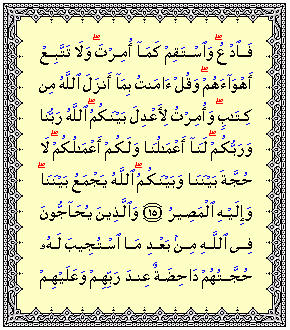 فَٱدْعُ ۖ وَٱسْتَقِمْ كَمَآ أُمِرْتَ ۖ وَلَا تَتَّبِعْ
أَهْوَآءَهُمْ ۖ وَقُلْ ءَامَنتُ بِمَآ أَنزَلَ ٱللَّهُ مِن
كِتَـٰبٍ ۖ وَأُمِرْتُ لِأَعْدِلَ بَيْنَكُمُ ۖ ٱللَّهُ رَبُّنَا
وَرَبُّكُمْ ۖ لَنَآ أَعْمَـٰلُنَا وَلَكُمْ أَعْمَـٰلُكُمْ ۖ لَا
حُجَّةَ بَيْنَنَا وَبَيْنَكُمُ ۖ ٱللَّهُ يَجْمَعُ بَيْنَنَا ۖ
وَإِلَيْهِ ٱلْمَصِيرُ ١٥ وَٱلَّذِينَ يُحَآجُّونَ
فِى ٱللَّهِ مِنۢ بَعْدِ مَا ٱسْتُجِيبَ لَهُۥ
حُجَّتُهُمْ دَاحِضَةٌ عِندَ رَبِّهِمْ وَعَلَيْهِمْ